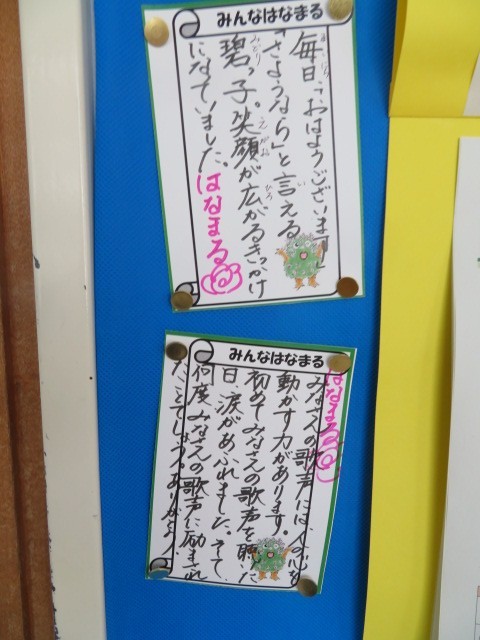 みんなはなまる
毎日、「おはようございます」
「さようなら」と言える
碧っ子。笑顔が広がるきっかけ
になっていました。はなまる
みんなはなまる
はなまる
みなさんの歌声には、人の心を
動かす力があります。
初めてみなさんの歌声を聴いた
日、涙があふれました。そして、
何度みなさんの歌声に励まされ
たことでしょう。ありがとう。